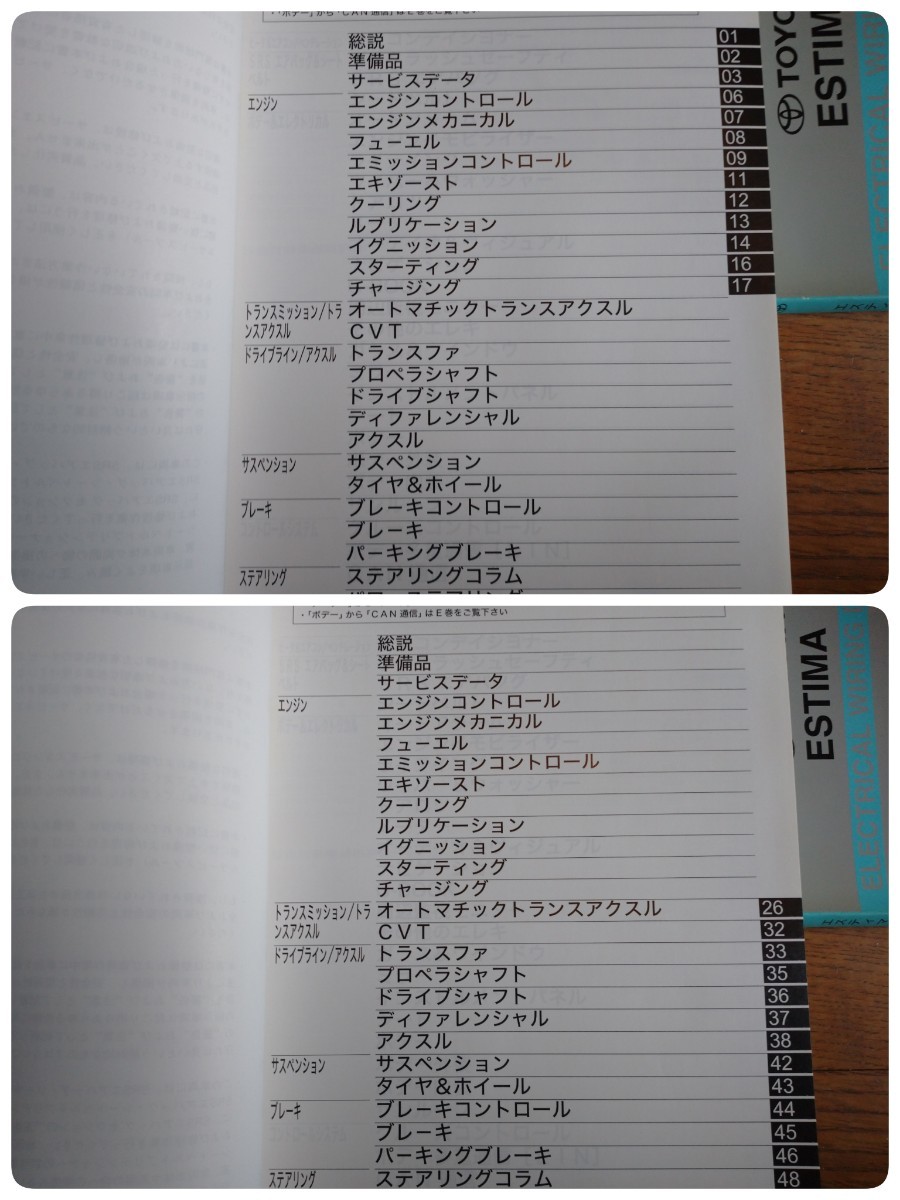 ・「ボデー」から「CAN通信」はE巻をご覧下さい
総説 01
準備品 02
サービスデータ 03
エンジン エンジンコントロール 06
エンジンメカニカル 07
フューエル 08
エミッションコントロール 09
エキゾースト 11
クーリング 12
ルブリケーション 13
イグニッション 14
スターティング 16
チャージング 17
トランスミッション/トラ オートマチックトランスアクスル
ンスアクスル CVT
ドライブライン/アクスル トランスファ
プロペラシャフト
ドライブシャフト
ディファレンシャル
アクスル
サスペンション サスペンション
タイヤ&ホイール
ブレーキ ブレーキコントロール
ブレーキ
パーキングブレーキ
ステアリング ステアリングコラム
TOYO
ESTIM
ELECTRICAL WIRI
・「ボデー」から「CAN通信」はE巻をご覧下さい
総説
準備品
サービスデータ
エンジン エンジンコントロール
エンジンメカニカル
フューエル
エミッションコントロール
エキゾースト
クーリング
ルブリケーション
イグニッション
スターティング
チャージング
トランスミッション/トラ オートマチックトランスアクスル 26
ンスアクスル CVT 32
ドライブライン/アクスル トランスファ 33
プロペラシャフト 35
ドライブシャフト 36
ディファレンシャル 37
アクスル 38
サスペンション サスペンション 42
タイヤ&ホイール 43
ブレーキ ブレーキコントロール 44
ブレーキ 45
パーキングブレーキ 46
ステアリング ステアリングコラム 48
ESTIMA
ELECTRICAL WIRING
エスティマ